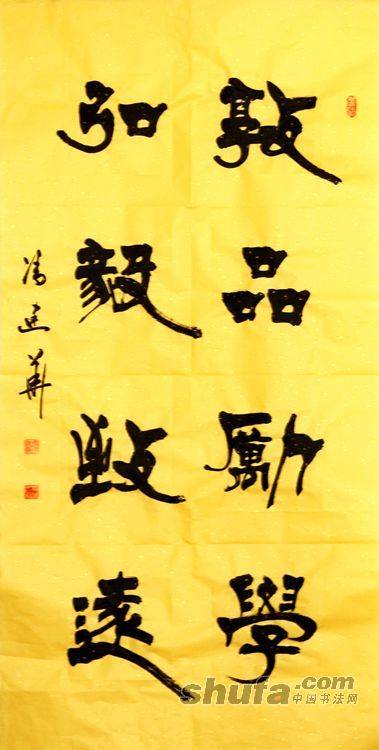 敦品勵學
弘毅致遠
馮建華
shufa.com
中国书法网